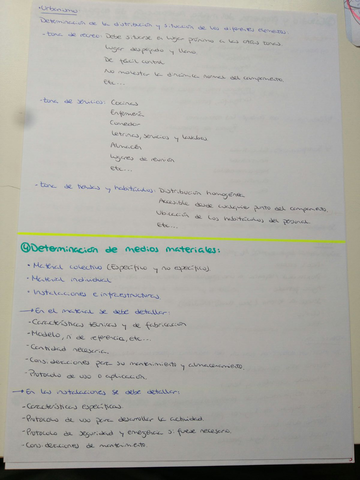 ·Urbanismo
Determinación de la distribución y situación de los diferentes elementos
- Zona de recreo: Debe situarse en lugar próximo a las otras zonas
Lugar despejado y llano
De fácil control
No molestar la dinámica normal del campamento
Etc...
- Zona de servicios: Cocinas
Enfermería
Comedor
Letrinas, servicios y lavabos
Almacén
Lugares de reunión
etc...
- Zona de tiendas y habitáculos: Distribución homogénea
Accesible desde cualquier punto del campamento
Ubicación de los habitáculos del personal
Etc...
Determinación de medios materiales:
• Material colectivo (Específico y no específico)
• Material individual
• Instalaciones e infraestructuras
→ En el material se debe detallar:
- Características técnicas y de fabricación
- Modelo, n. de referencia, etc...
- Cantidad necesaria
- Consideraciones para su mantenimiento y almacenamiento
- Protocolo de uso o aplicación
→ En las instalaciones se debe detallar:
- Características específicas
- Protocolo de uso para desarrollar la actividad
- Protocolo de seguridad y emergencia si fuese necesario
- Consideraciones de mantenimiento